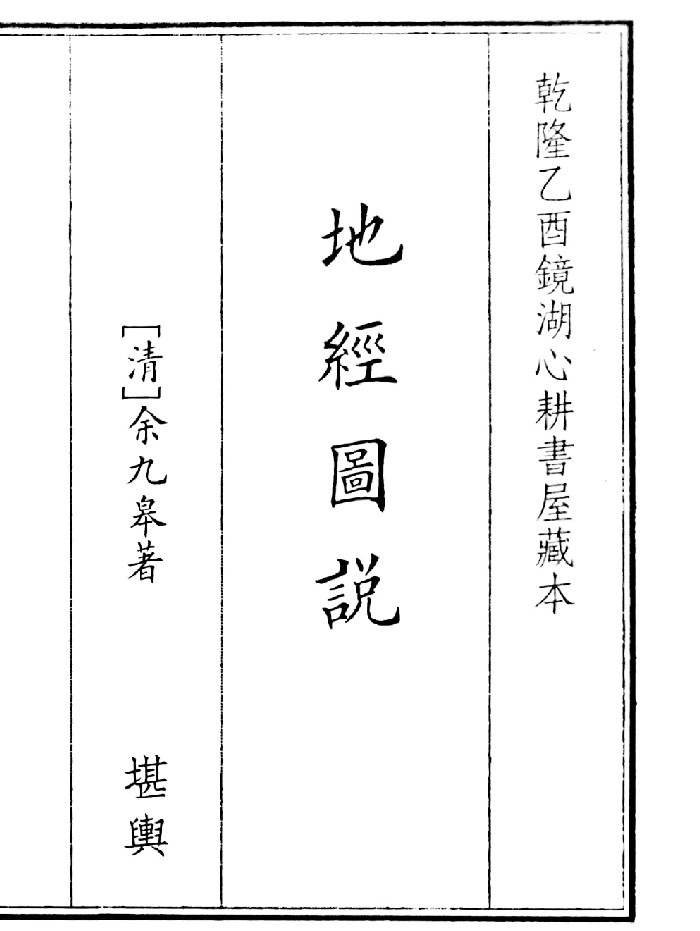 乾隆乙酉鏡湖心耕書屋藏本
地經圖説
[清]余九皋著
堪輿